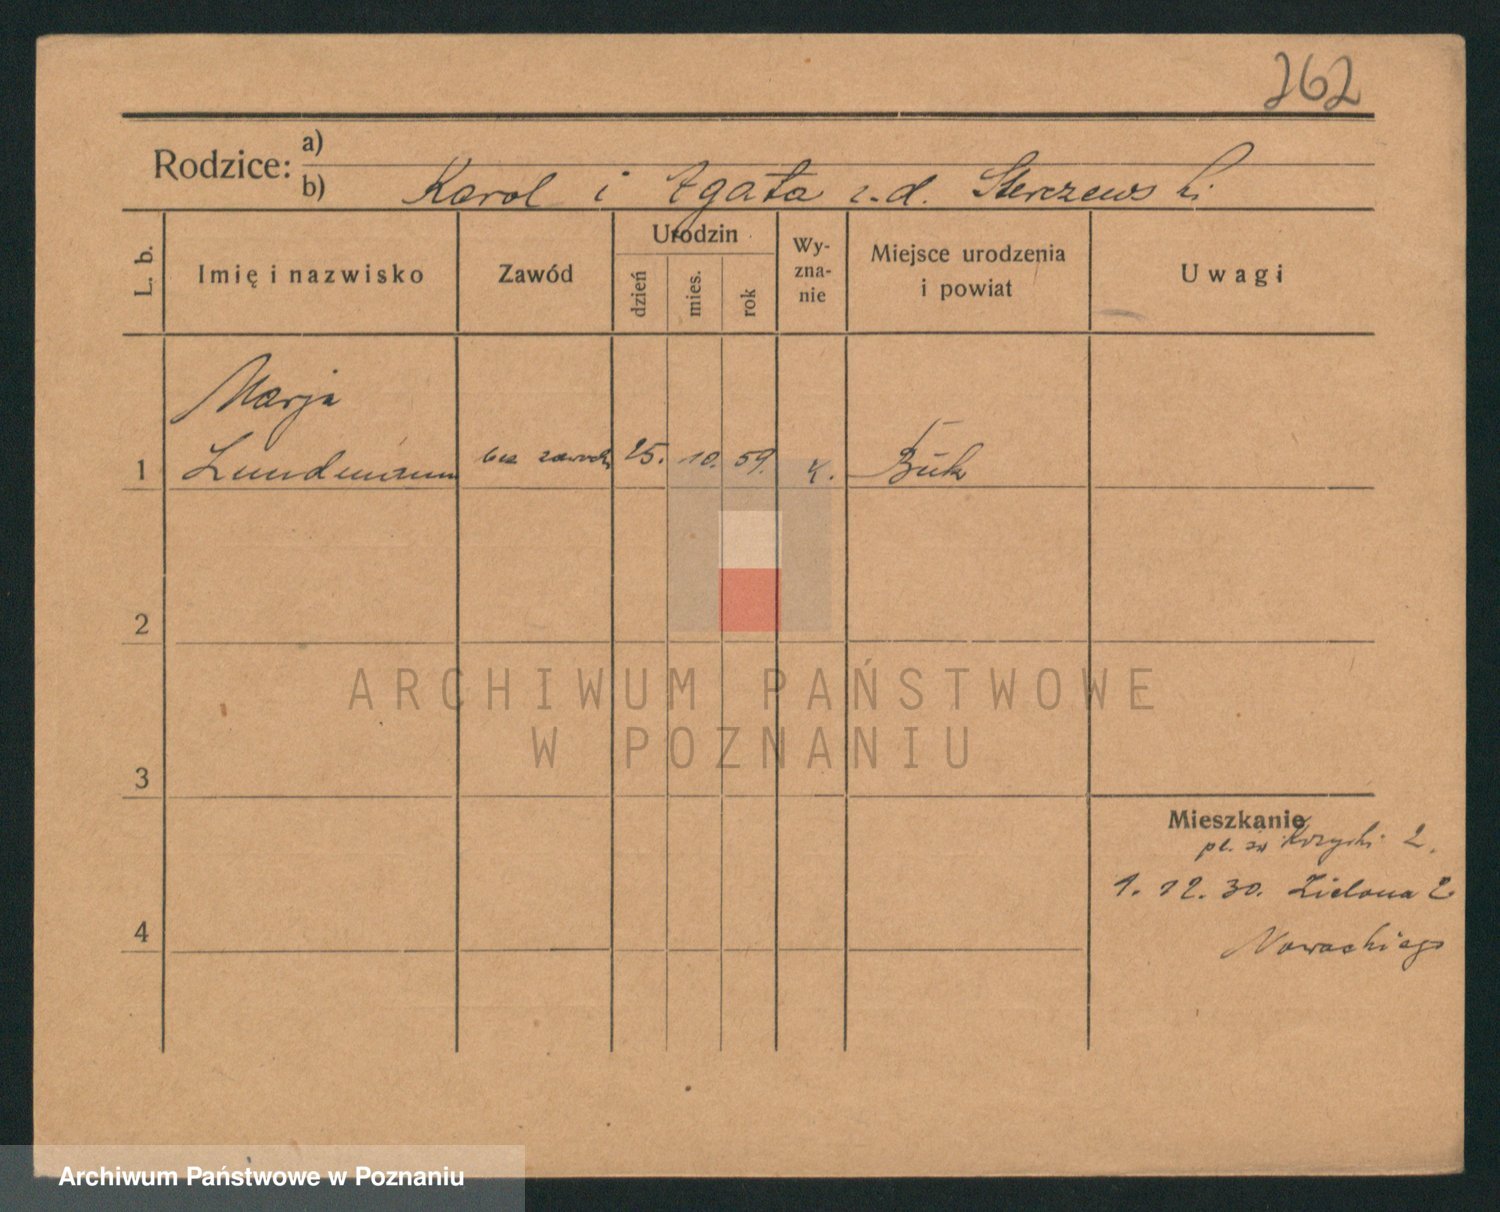 262
Rodzice:
a)
b) Karol i Agata z.d. Sterczewski
L. b.
Imię i nazwisko
Zawód
Urodzin
dzień
mies.
rok
Wy-
zna-
nie
Miejsce urodzenia
i powiat
Uwagi
Marja
1 Lundmann bez zawodu 25. 10. 59. K. Buk
2
3
4
Mieszkanie
pl. św Krzyski 2.
1. 12. 30. Zielona 2
Nowackiego
ARCHIWUM PAŃSTWOWE
W POZNANIU
Archiwum Państwowe w Poznaniu